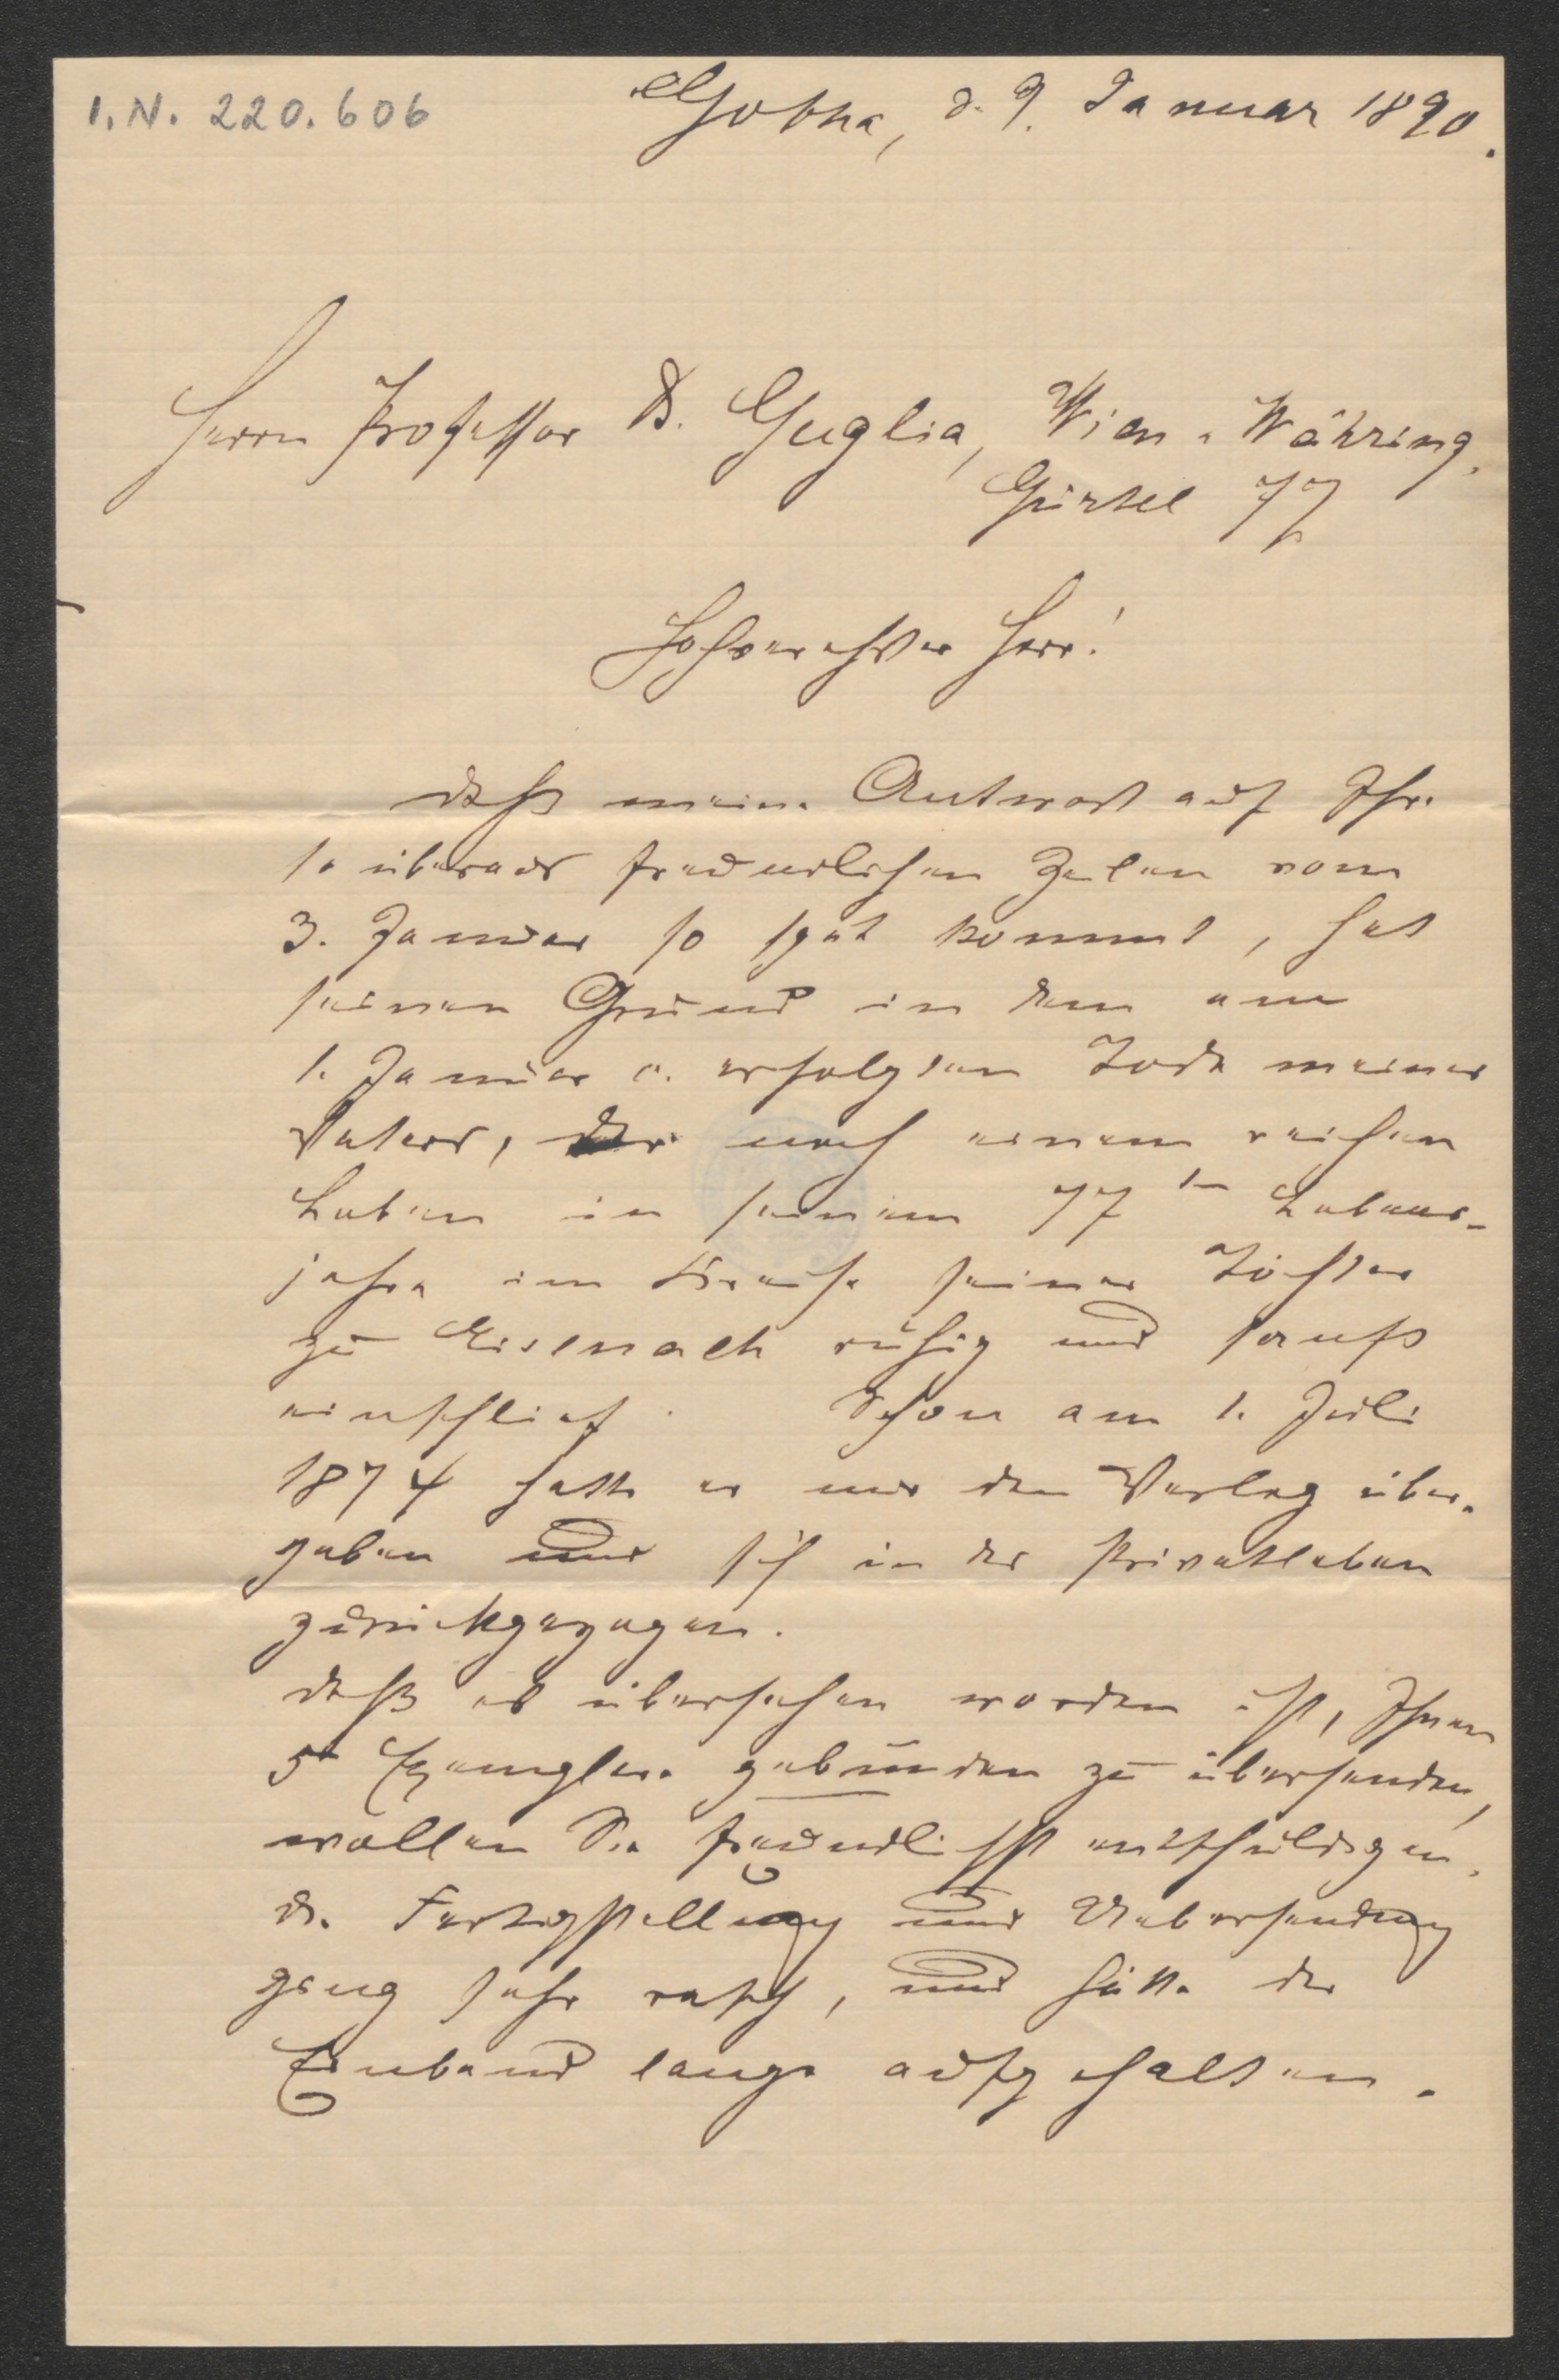 I. N. 220.606
Gotha, d. 9. Januar 1890.
Herrn Professor Dr. Guglia, Wien-Währing,
Gürtel 77
Hochverehrter Herr!
daß meine Antwort auf Ihre
so überaus freundlichen Zeilen vom
3. Januar so spät kommt, hat
seinen Grund in dem am
1. Januar c. erfolgten Tode meines
Vaters, der nach einem reichen
Leben in seinem 77ten Lebens-
jahre im Kreise seiner Töchter
zu Eisenach ruhig und sanft
einschlief. Schon am 1. Juli
1874 hatte er mir den Verlag über-
geben und sich in das Privatleben
zurückgezogen.
daß es übersehen worden ist, Ihnen
5 Exemplare gebunden zu übersenden,
wollen Sie freundlichst entschuldigen.
die Fertigstellung und Uebersendung
ging sehr rasch, und hätte der
Einband lange aufgehalten.